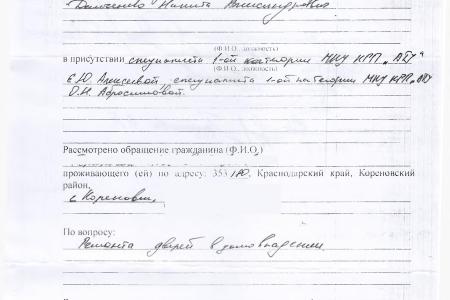 Данченко Никита Александрович
(Ф.И.О., должность)
в присутствии специалиста 1-ой категории МКУ КРП „АТУ“
(Ф.И.О., должность)
Е.Ю. Алексеевой, специалиста 1-ой категории МКУ КРП „АТУ
О.Н. Абросимовой.
Рассмотрено обращение гражданина (Ф.И.О.)
проживающего (ей) по адресу: 353180, Краснодарский край, Кореновский
район,
г. Кореновск,
По вопросу:
Ремонта дверей в домовладении